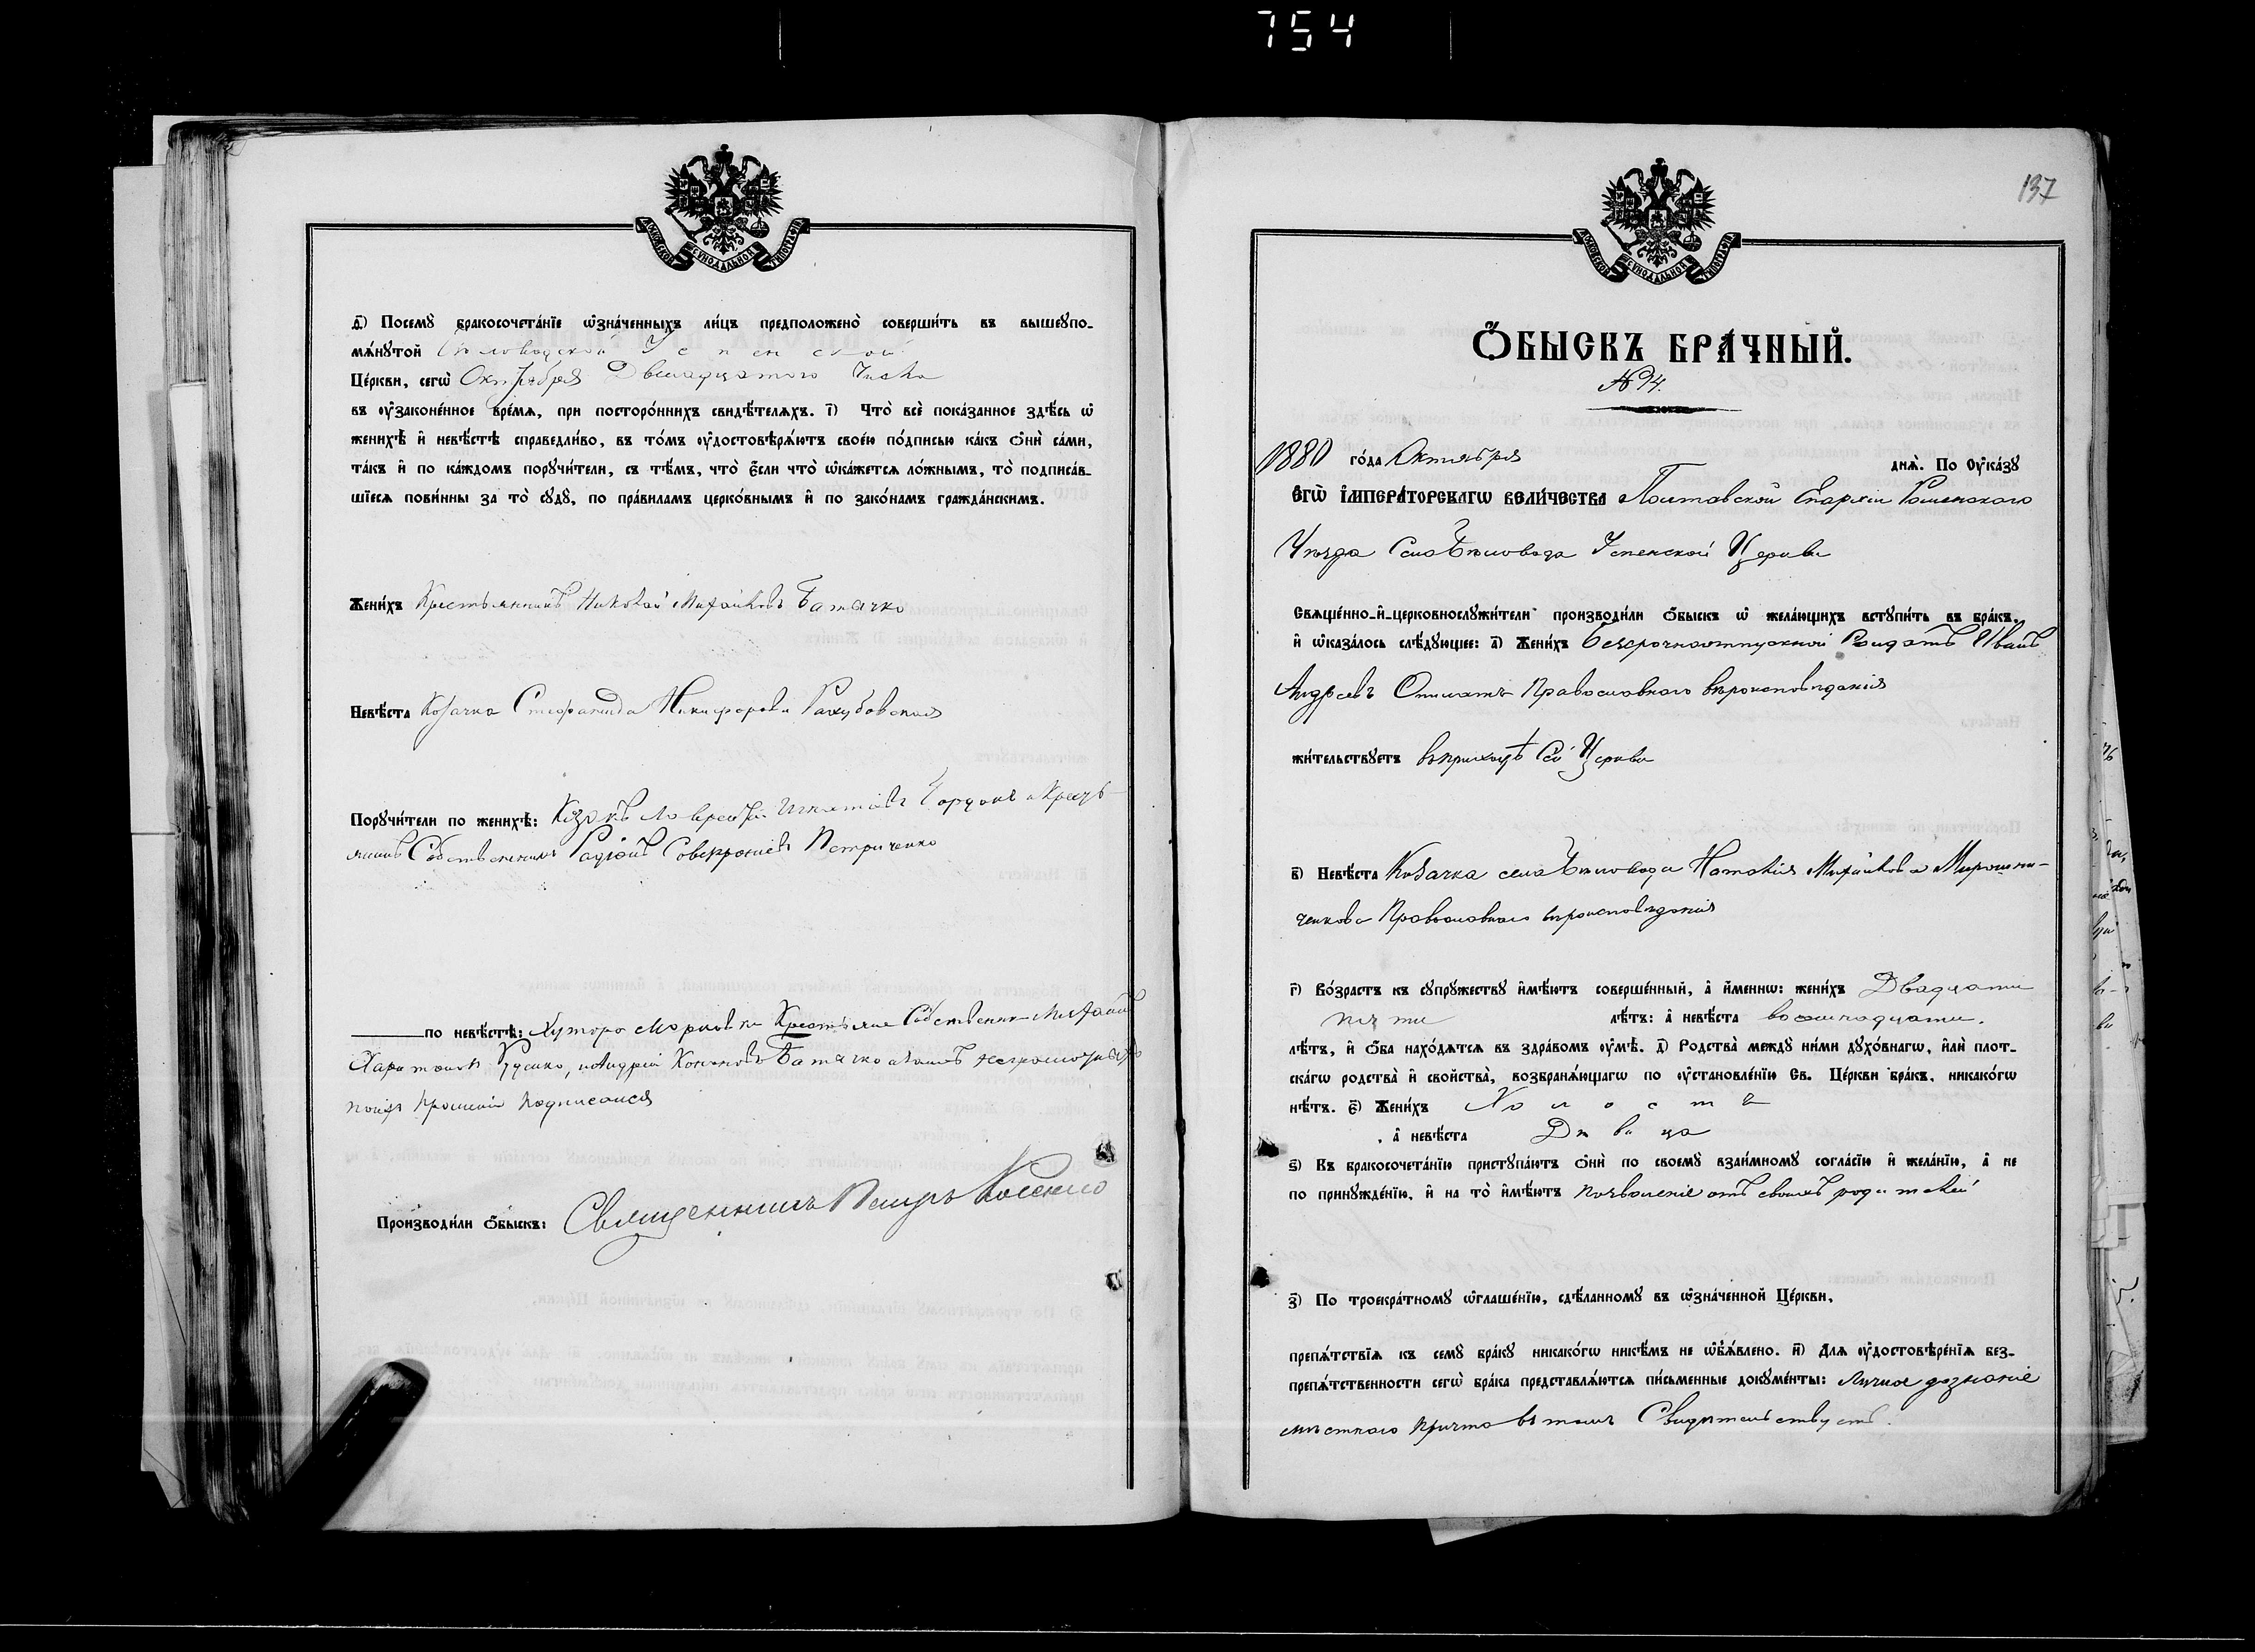 754
МОСКОВСКОЙ СѴНОДАЛЬНОЙ ТИПОГРАФІИ
д҃і) Посемꙋ бракосочета́нїе ѡ҆зна́ченныхъ ли́цъ предположено̀ соверши́ть въ вышеꙋпо-
мѧ́нꙋтой Беловодской Успенской
Це́ркви, сегѡ̀ Октября Двенадцатого Числа
въ ᲂу҆законе́нное вре́мѧ, при посторо́ннихъ свидѣ́телѧхъ. і҃) Что̀ всѐ пока́занное здѣ́сь ѡ҆
женихѣ̀ и҆ невѣ́стѣ справедли́во, въ то́мъ ᲂу҆достовѣрѧ́ютъ свое́ю по́дписью ка́къ ѻ҆нѝ са́ми,
та́къ и҆ по ка́ждомъ порꙋчи́тели, съ тѣ́мъ, что̀ є҆́сли что̀ ѡ҆ка́жетсѧ ло́жнымъ, то̀ подписа́в-
шїесѧ пови́нны за то̀ сꙋдꙋ̀, по пра́виламъ церко́внымъ и҆ по зако́намъ гражда́нскимъ.
Жени́хъ Крестьянинъ Николай Михайловъ Батачко
Невѣ́ста Козачка Стефанида Никифорова
Порꙋчи́тели по женихѣ̀: Козакъ Лаврентій Игнатіевъ и Кресть-
янинъ Собственникъ Радіонъ Петриченко
по невѣ́стѣ: Хутора Марковки Крестьяне Собственники Михаилъ
Харитоновъ Гусико, и Андрей Батачко
Произво́дили ѻ҆́быскъ: Священникъ Петръ
137
МОСКОВСКОЙ СѴНОДАЛЬНОЙ ТИПОГРАФІИ
Ѻ҆́БЫСКЪ БРА́ЧНЫЙ.
№ 94.
1880 го́да Октября днѧ̀. По Оу҆ка́зꙋ
Є҆ГѠ̀ І҆МПЕРА́ТОРСКАГѠ ВЕЛИ́ЧЕСТВА Полтавской Епархіи Роменского
Уезда Села Беловода Успенской Церкви
Свѧще́нно-и҆-церковнослꙋжи́тели производи́ли ѻ҆́быскъ ѡ҆ жела́ющихъ встꙋпи́ть въ бра́къ,
и҆ ѡ҆каза́лось слѣ́дꙋющее: а҃) Жени́хъ безсрочноотпускной Солдатъ Иванъ
Андреевъ Православного вероисповеданія
жи́тельствꙋетъ въ приходѣ Сей Церкви
в҃) Невѣ́ста Козачка села Беловода Наталія Михайлова Мирошни-
ченкова Православного вероисповеданія
г҃) Во́зрастъ къ сꙋпрꙋ́жествꙋ и҆мѣ́ютъ соверше́нный, а҆ и҆́меннѡ: жени́хъ Двадцати
пяти лѣ́тъ: а҆ невѣ́ста восемнадцати.
лѣ́тъ, и҆ ѻ҆́ба нахо́дѧтсѧ въ здра́вомъ ᲂу҆мѣ̀. д҃) Родства̀ междꙋ ни́ми дꙋхо́внагѡ, и҆лѝ плот-
ска́гѡ родства̀ и҆ сво́йства̀, возбранѧ́ющагѡ по ᲂу҆становле́нїю Св. Це́ркви бра́къ, никако́гѡ
нѣ́тъ. є҃) Жени́хъ Холостъ
, а҆ невѣ́ста Девица
ѕ҃) Къ бракосочета́нїю пристꙋпа́ютъ ѻ҆нѝ по своемꙋ̀ взаи́мномꙋ согла́сїю и҆ жела́нїю, а҆ не
по принꙋжде́нїю, и҆ на то̀ и҆мѣ́ютъ позволеніе отъ своихъ родителей
з҃) По троекра́тномꙋ ѡ҆глаше́нїю, сдѣ́ланномꙋ въ ѡ҆зна́ченной Це́ркви,
препѧ́тствїѧ къ семꙋ̀ бра́кꙋ никако́гѡ никѣ́мъ не ѡ҆б̾ѧ́влено. и҃) Длѧ̀ ᲂу҆достовѣре́нїѧ без-
препѧ́тственности сегѡ̀ бра́ка представлѧ́ютсѧ пи́сьменные докꙋме́нты: Личное дознаніе
местного Причта въ томъ Свидетельствуетъ.